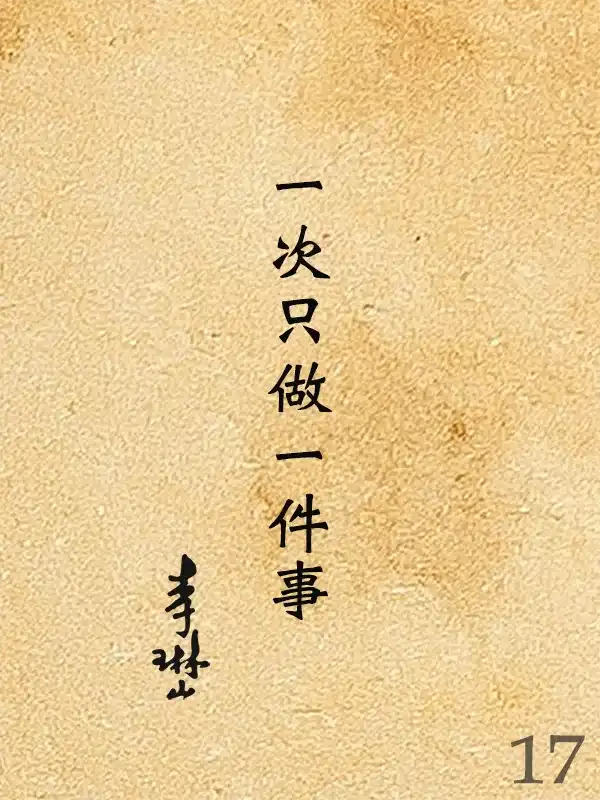 一次只做一件事
李琳山
17